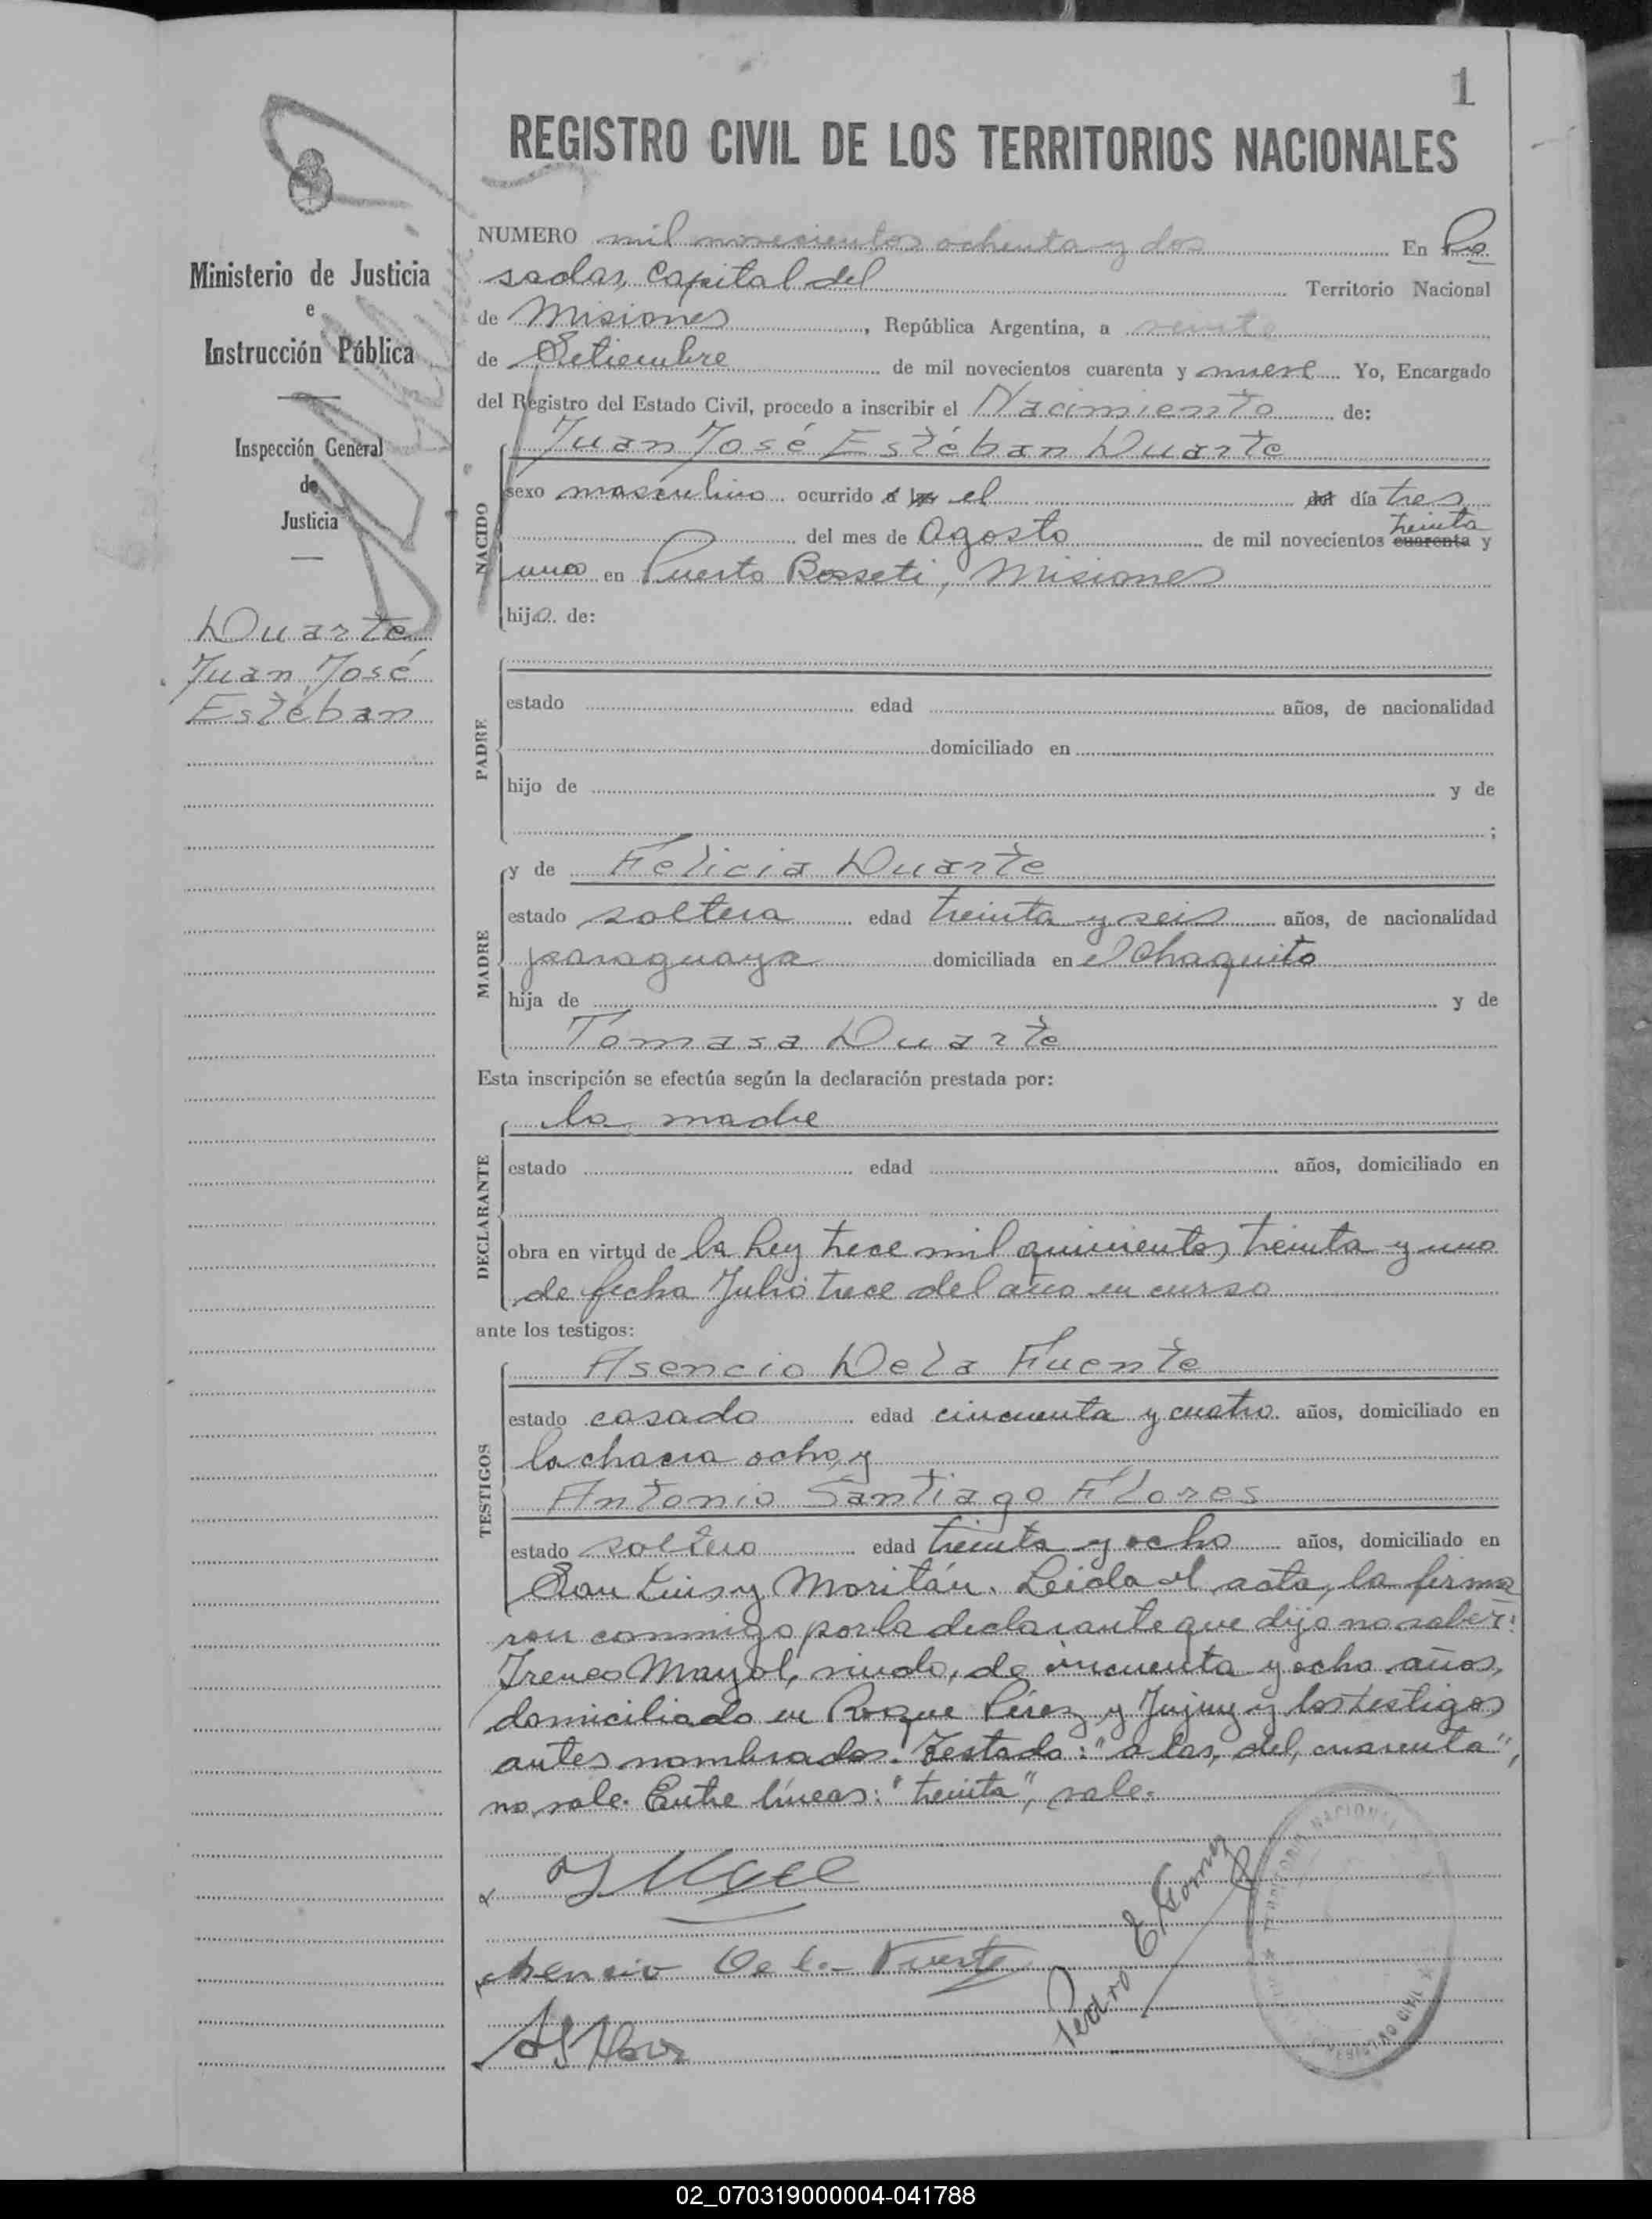 1
REGISTRO CIVIL DE LOS TERRITORIOS NACIONALES
Ministerio de Justicia
e
Instrucción Pública
Inspección General
de
Justicia
Duarte
Juan José
Estéban
NUMERO mil novecientos ochenta y dos En Po
sadas, Capital del Territorio Nacional
de Misiones, República Argentina, a veinte
de Setiembre de mil novecientos cuarenta y nueve Yo, Encargado
del Registro del Estado Civil, procedo a inscribir el Nacimiento de:
NACIDO
Juan José Estéban Duarte
sexo masculino ocurrido a las el del día tres
treinta
del mes de Agosto de mil novecientos cuarenta y
uno en Puerto Bosseti, Misiones
hijo de:
PADRE
estado edad años, de nacionalidad
domiciliado en
hijo de y de
;
MADRE
y de Felicia Duarte
estado soltera edad treinta y seis años, de nacionalidad
paraguaya domiciliada en el Chaquito
hija de y de
Tomasa Duarte
Esta inscripción se efectúa según la declaración prestada por:
DECLARANTE
la madre
estado edad años, domiciliado en
obra en virtud de la Ley trece mil quinientos treinta y uno
de fecha Julio trece del año en curso
ante los testigos:
TESTIGOS
Asencio De la Fuente
estado casado edad cincuenta y cuatro años, domiciliado en
la chacra ocho, y
Antonio Santiago Flores
estado soltero edad treinta y ocho años, domiciliado en
San Luis y Moritán. Leida el acta, la firma
ron conmigo por la declarante que dijo no saber:
Ireneo Mayol, viudo, de cincuenta y ocho años,
domiciliado en Roque Pérez y Jujuy y los testigos
antes nombrados. Testado: "a las, del, cuarenta",
no vale. Entre líneas: "treinta", vale.
Asencio De la Fuente
Pedro E Gomez
02_070319000004-041788